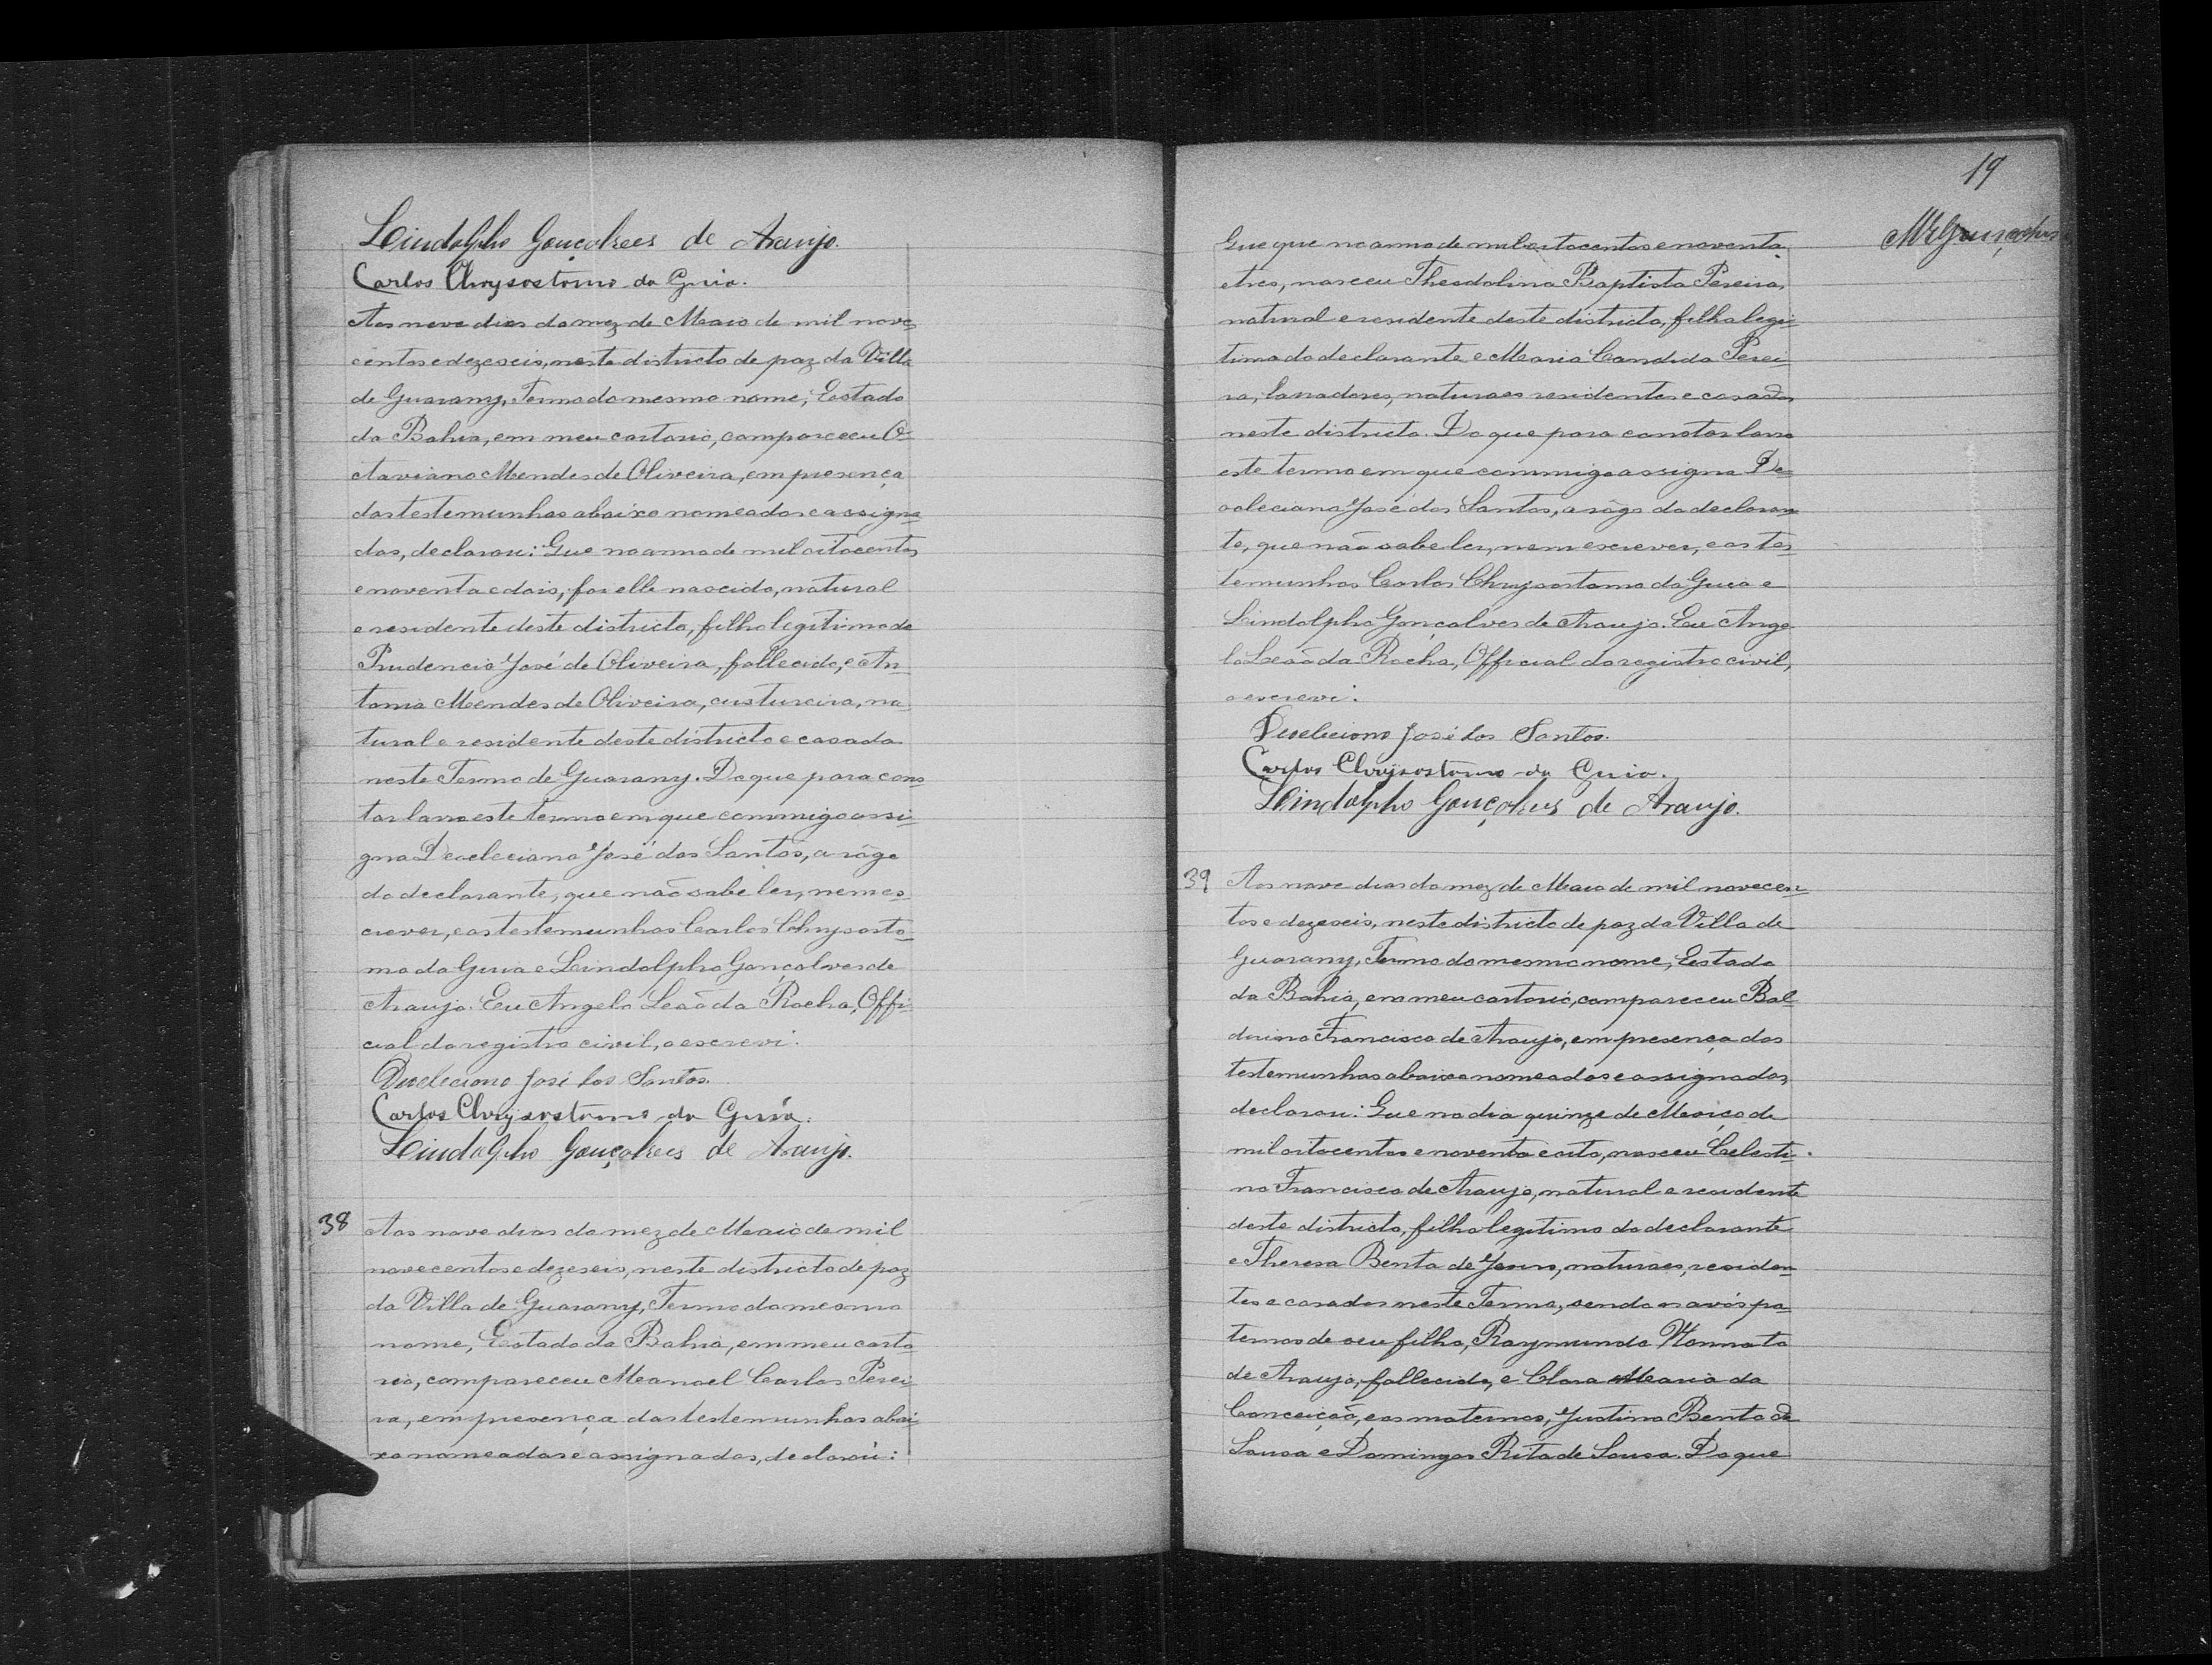 Lindolpho Gonçalves de Araujo.
Carlos Chrysostomo da Guia.
Aos nove dias do mez de Maio de mil nove-
centos e dezeseis, neste districto de paz da Villa
de Guarany, Termo do mesmo nome, Estado
da Bahia, em meu cartorio, compareceu O-
ctaviano Mendes de Oliveira, em presença
das testemunhas abaixo nomeadas e assigna-
das, declarou: Que no anno de mil oitocentos
e noventa e dois, foi elle nascido, natural
e residente deste districto, filho legitimo de
Prudencio José de Oliveira, fallecido, e An-
tonia Mendes de Oliveira, custureira, na-
tural e residente deste districto e casada
neste Termo de Guarany. Do que para cons-
tar lavro este termo em que commigo assi-
gna Deocleciano José dos Santos, a rôgo
do declarante, que não sabe ler, nem es-
crever, e as testemunhas Carlos Chrysosto-
mo da Guia e Lindolpho Gonçalves de
Araujo. Eu Angelo Leão da Rocha, Offi-
cial do registro civil, o escrevi.
Deocleciano José dos Santos.
Carlos Chrysostomo da Guia.
Lindolpho Gonçalves de Araujo.
38 Aos nove dias do mez de Maio de mil
novecentos e dezeseis, neste districto de paz
da Villa de Guarany, Termo do mesmo
nome, Estado da Bahia, em meu carto-
rio, compareceu Manoel Carlos Perei-
ra, em presença das testemunhas abai-
xo nomeadas e assignadas, declarou:
19
Que que no anno de mil oitocentos e noventa
e tres, nasceu Theodolina Baptista Pereira,
natural e residente deste districto, filha legi-
tima do declarante e Maria Candida Perei-
ra, lavradores, naturaes residentes e casados
neste districto. Do que para constar lavro
este termo em que commigo assigna De-
ocleciano José dos Santos, a rôgo do declaran-
te, que não sabe ler, nem escrever, e as tes-
temunhas Carlos Chrysostomo da Guia e
Lindolpho Gonçalves de Araujo. Eu Ange-
lo Leão da Rocha, Official do registro civil,
o escrevi.
Deocleciano José dos Santos.
Carlos Chrysostomo da Guia.
Lindolpho Gonçalves de Araujo.
39 Aos nove dias do mez de Maio de mil novecen-
tos e dezeseis, neste districto de paz da Villa de
Guarany, Termo do mesmo nome, Estado
da Bahia, em meu cartorio, compareceu Bal-
duino Francisco de Araujo, em presença das
testemunhas abaixo nomeadas e assignadas,
declarou: Que no dia quinze de Março de
mil oitocentos e noventa e oito, nasceu Celesti-
no Francisco de Araujo, natural e residente
deste districto, filho legitimo do declarante
e Theresa Benta de Jesus, naturaes, residen-
tes e casados neste Termo, sendo os avós pa-
ternos de seu filho, Raymundo Nonnato
de Araujo, fallecido, e Clara Maria da
Conceição, e os maternos, Justina Benta de
Sousa e Domingos Rita de Sousa. Do que